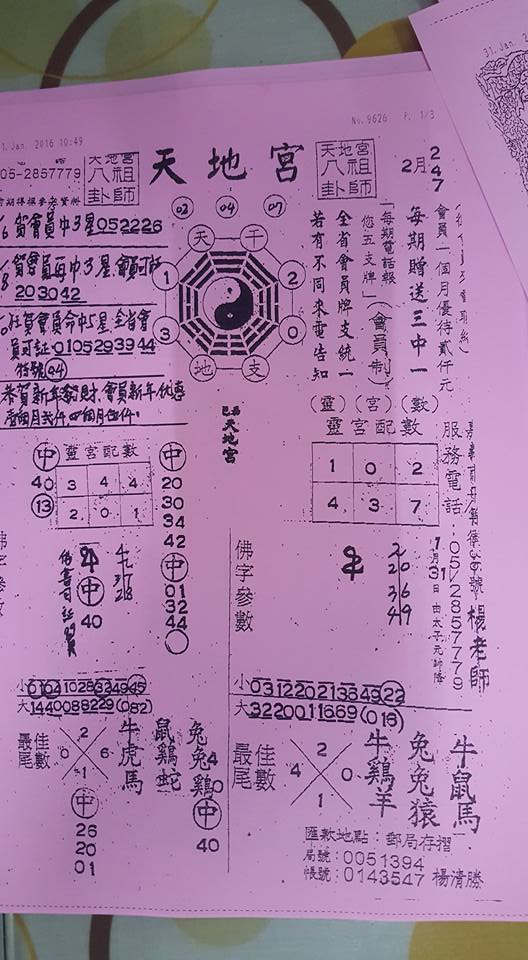 31. Jan. 2
1. Jan. 2016 10:49
No. 9626 P. 1/3
05-2857779
天地宮
八祖
卦師
天地宮
天地宮
八祖
卦師
2月
2
4
7
賀會員中3星052226
03
04
07
天
干
1
2
3
0
地
支
203042
全省會
員可証0105293944
特號04
恭賀新年發財.會員新年優惠
會員一個月優待貳仟元
每期贈送三中一
「每期電話報
您五支牌」
(會員制)
全省會員牌支統一
若有不同來電告知
天地宮
(靈)(宮)(數)
靈宮配數
1 0 2
4 3 7
服務電話
05/2857779
楊老師
1月31日由太子元帥降
中
靈宮配數
中
40
13
3 4 4
2 0 1
20
30
34
42
中
01
32
44
中
40
28
佛字參數
佛字參數
2
20
36
49
小01041028324945
大1440088229(082)
小03122021364922
大3220011669(016)
最佳
尾數
2
0 6
1
牛虎馬
鼠鷄蛇
兔兔鷄
40
中
40
中
26
20
01
最佳
尾數
2
4 0
1
牛鷄羊
兔兔猿
牛鼠馬
匯款地點:郵局存摺
局號:0051394
帳號:0143547 楊清勝